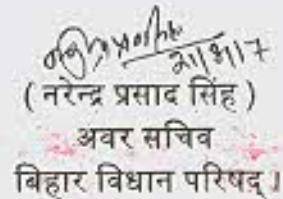 21/9/17
( नरेन्द्र प्रसाद सिंह )
अवर सचिव
बिहार विधान परिषद् ।